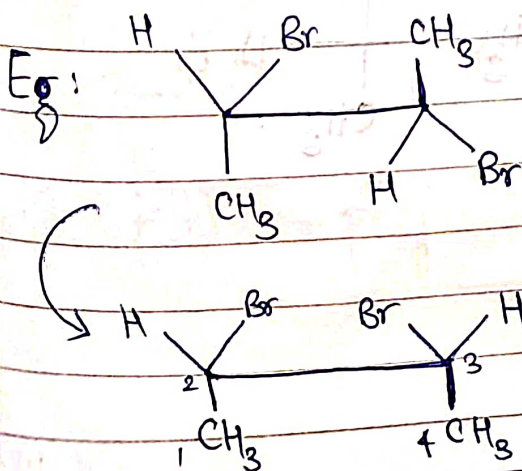 H Br CH3
Eg:
CH3 H Br
H Br Br H
2 3
1 CH3 4 CH3